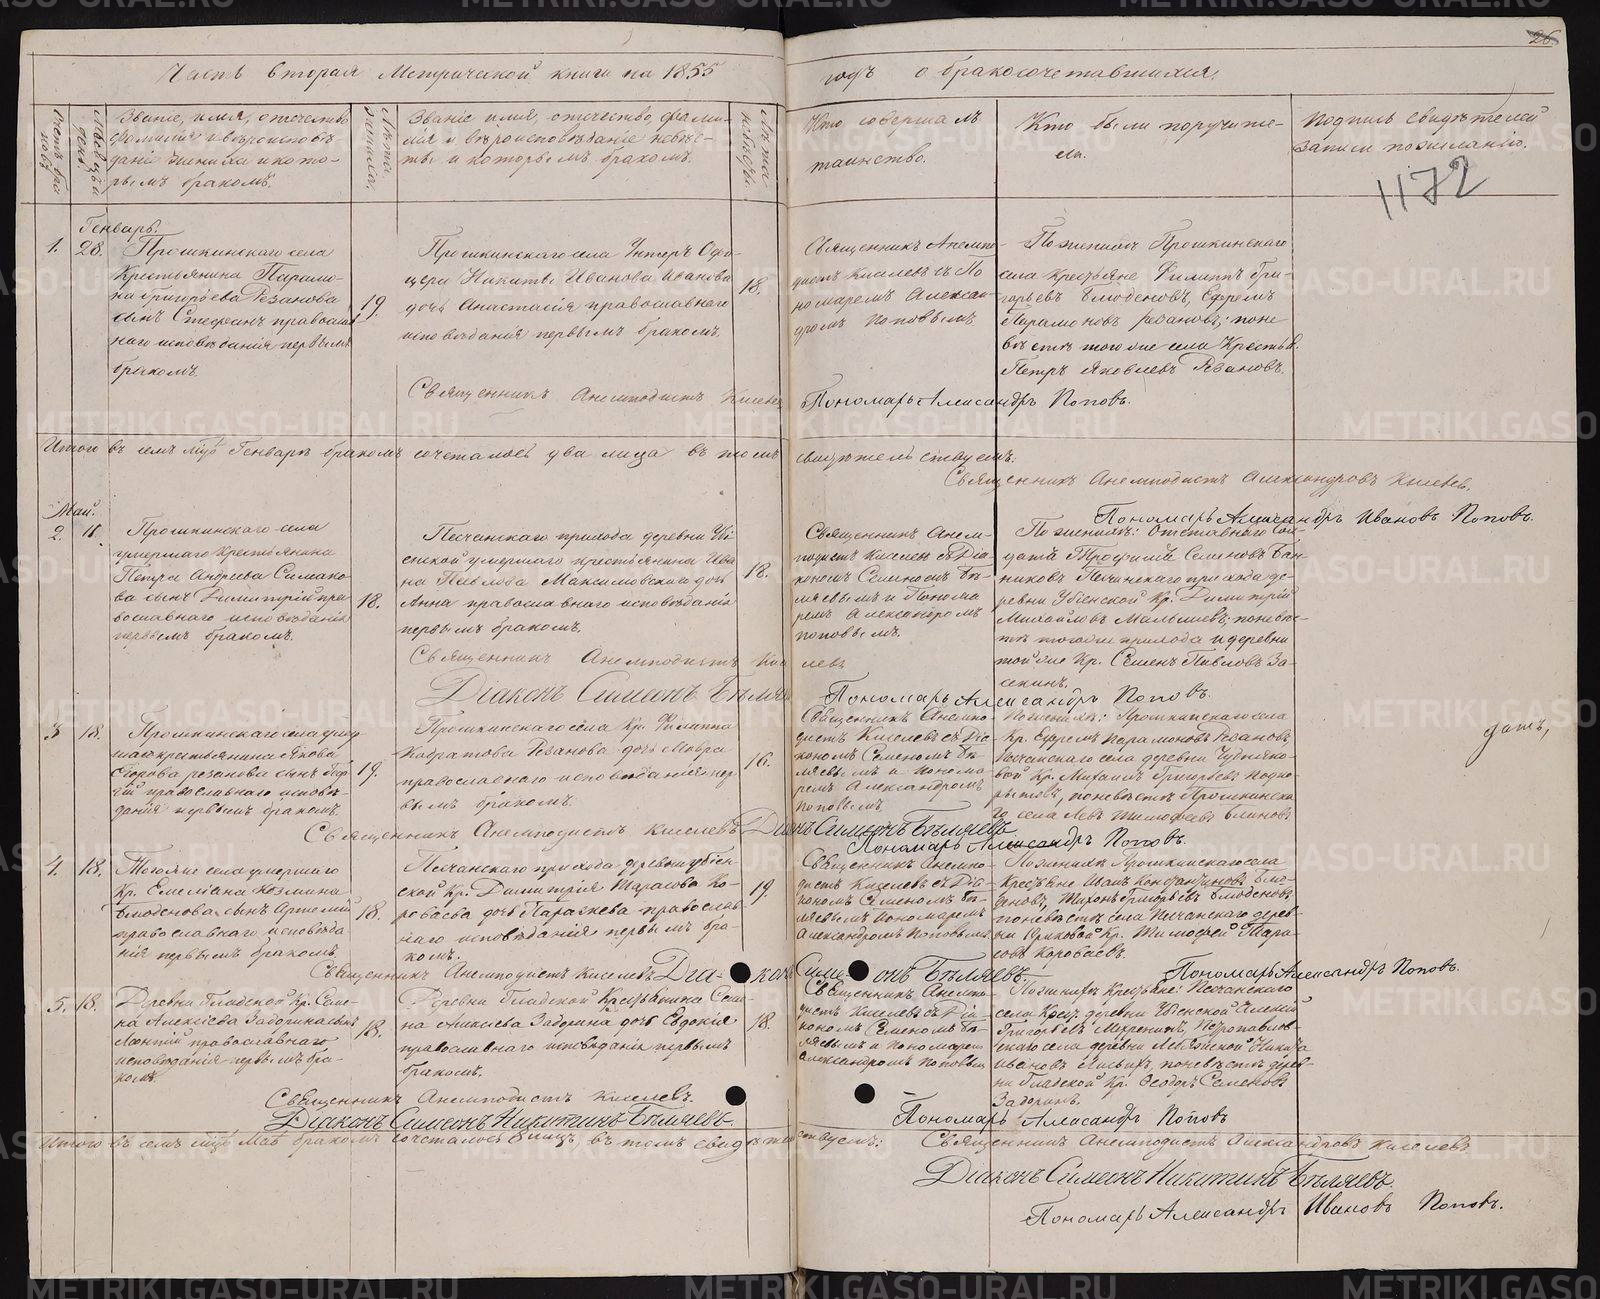 26
Часть вторая Метрической книги на 1855 годъ о бракосочетавшихся,
Счетъ браковъ
Мѣсяцъ и день
Званіе, имя, отчество,
фамилія и вѣроисповѣ-
даніе жениха и кото-
рымъ бракомъ.
Лѣта жениха.
Званіе имя, отчество, фами-
лія и вѣроисповѣданіе невѣс-
ты и которымъ бракомъ.
Лѣта невѣсты.
Кто совершалъ
таинство.
Кто были поручите-
ли.
Подпись свидѣтелей
записи по желанію.
1172
Генварь.
1. 28.
Прошкинскаго села
Крестьянина Парамо-
на Григорьева Резанова
сынъ Стефанъ православ
наго исповѣданія первымъ
бракомъ.
19.
Прошкинскаго села Унтеръ Офи-
цера Никиты Иванова Иванова
дочь Анастасія православнаго
исповѣданія первымъ бракомъ.
18.
Священникъ Анемпо-
дистъ Киселевъ съ По
номаремъ Алексан-
дромъ Поповымъ
По женихѣ Прошкинскаго
села крестьяне Филиппъ Гри-
горьевъ Блюденовъ, Ефремъ
Парамоновъ Резановъ; по не
вѣстѣ того же села Крестьян.
Петръ Яковлевъ Резановъ.
Священникъ Анемподистъ Киселевъ
Пономарь Александръ Поповъ.
Итого въ семъ мцѣ Генварѣ бракомъ сочеталось два лица въ томъ свидѣтельствуемъ.
Священникъ Анемподистъ Александровъ Киселевъ.
Пономарь Александръ Ивановъ Поповъ.
Май.
2. 11.
Прошкинскаго села
умершаго крестьянина
Петра Андреева Симако-
ва сынъ Димитрій пра
вославнаго исповѣданія
первымъ бракомъ.
18.
Песчанскаго прихода деревни Убі-
енской умершаго крестьянина Ива
на Павлова Максимовскаго дочь
Анна православнаго исповѣданія
первымъ бракомъ.
18.
Священникъ Анем-
подистъ Киселевъ съ Діа
кономъ Семеномъ Бѣ-
ляевымъ и Понома
ремъ Александромъ
Поповымъ.
По женихѣ: Отставнаго Сол-
датъ Трофимъ Семеновъ Бан-
никовъ Песчанскаго прихода де-
ревни Убіенской Кр. Димитрій
Михайловъ Малышевъ; по невѣс-
тѣ тогоже прихода и деревни
той же Кр. Семенъ Павловъ За-
секинъ.
Священникъ Анемподистъ Киселевъ
Діаконъ Симеонъ Бѣляевъ
Пономарь Александръ Поповъ.
3 18.
Прошкинскаго села умер
шаго крестьянина Якова
Егорова Резанова сынъ
православнаго исповѣ-
данія первымъ бракомъ.
19.
Прошкинскаго села Кр. Филиппа
Резанова дочь Мавра
православнаго исповѣданія пер-
вымъ бракомъ.
16.
Священникъ Анемпо-
дистъ Киселевъ съ Діа
кономъ Семеномъ Бѣ-
ляевымъ и Понома-
ремъ Александромъ
Поповымъ
По женихѣ: Прошкинскаго села
Кр. Ефремъ Парамоновъ Резановъ
Песчанскаго села деревни
Кр. Михаилъ Григорьевъ
по невѣстѣ Прошкинска
го села Левъ Тимофеевъ Блиновъ
датъ,
Священникъ Анемподистъ Киселевъ Діаконъ Симеонъ Бѣляевъ
Пономарь Александръ Поповъ.
4. 18.
Тогоже села умершаго
Кр. Емеліана Козмина
Блюденова сынъ Артемій
православнаго исповѣда
нія первымъ бракомъ
18.
Песчанскаго прихода деревни Убіен-
ской Кр. Димитрія Тарасова Ко-
робаева дочь Параскева православ
наго исповѣданія первымъ бра-
комъ.
19.
Священникъ Анемпо-
дистъ Киселевъ съ Діа
кономъ Семеномъ Бѣ-
ляевымъ Пономаремъ
Александромъ Поповымъ
По женихѣ Прошкинскаго села
Крестьяне Иванъ Константиновъ Блю-
деновъ, Тихонъ Григорьевъ Блюденовъ
по невѣстѣ села Песчанскаго дерев-
ни Юриковой Кр. Тимофей Тара-
совъ Коробаевъ.
Священникъ Анемподистъ Киселевъ Діаконъ Симеонъ Бѣляевъ
Пономарь Александръ Поповъ.
5. 18.
Деревни Гладской Кр. Семе-
на Алексѣева Задорина сынъ
Леонтій православнаго
исповѣданія первымъ бра-
комъ.
18.
Деревни Гладской Крестьянина Семе-
на Алексѣева Задорина дочь Евдокія
православнаго исповѣданія первымъ
бракомъ.
18.
Священникъ Анемпо-
дистъ Киселевъ съ Діа-
кономъ Семеномъ Бѣ-
ляевымъ и Пономаремъ
Александромъ Поповымъ
По женихѣ Крестьяне: Песчанскаго
села Крест. деревни Убіенской Алексій
Григорьевъ Мехренинъ, Петропавлов-
скаго села деревни Лебяжской Никита
Ивановъ по невѣстѣ дерев-
ни Гладской Кр. Феодоръ Семеновъ
Задоринъ.
Священникъ Анемподистъ Киселевъ.
Діаконъ Симеонъ Никитинъ Бѣляевъ.
Пономарь Александръ Поповъ
Итого въ семъ мцѣ Маѣ бракомъ сочеталось 8 лицъ въ томъ свидѣтельствуемъ: Священникъ Анемподистъ Александровъ Киселевъ
Діаконъ Симеонъ Никитинъ Бѣляевъ.
Пономарь Александръ Ивановъ Поповъ.
METRIKI.GASO-URAL.RU